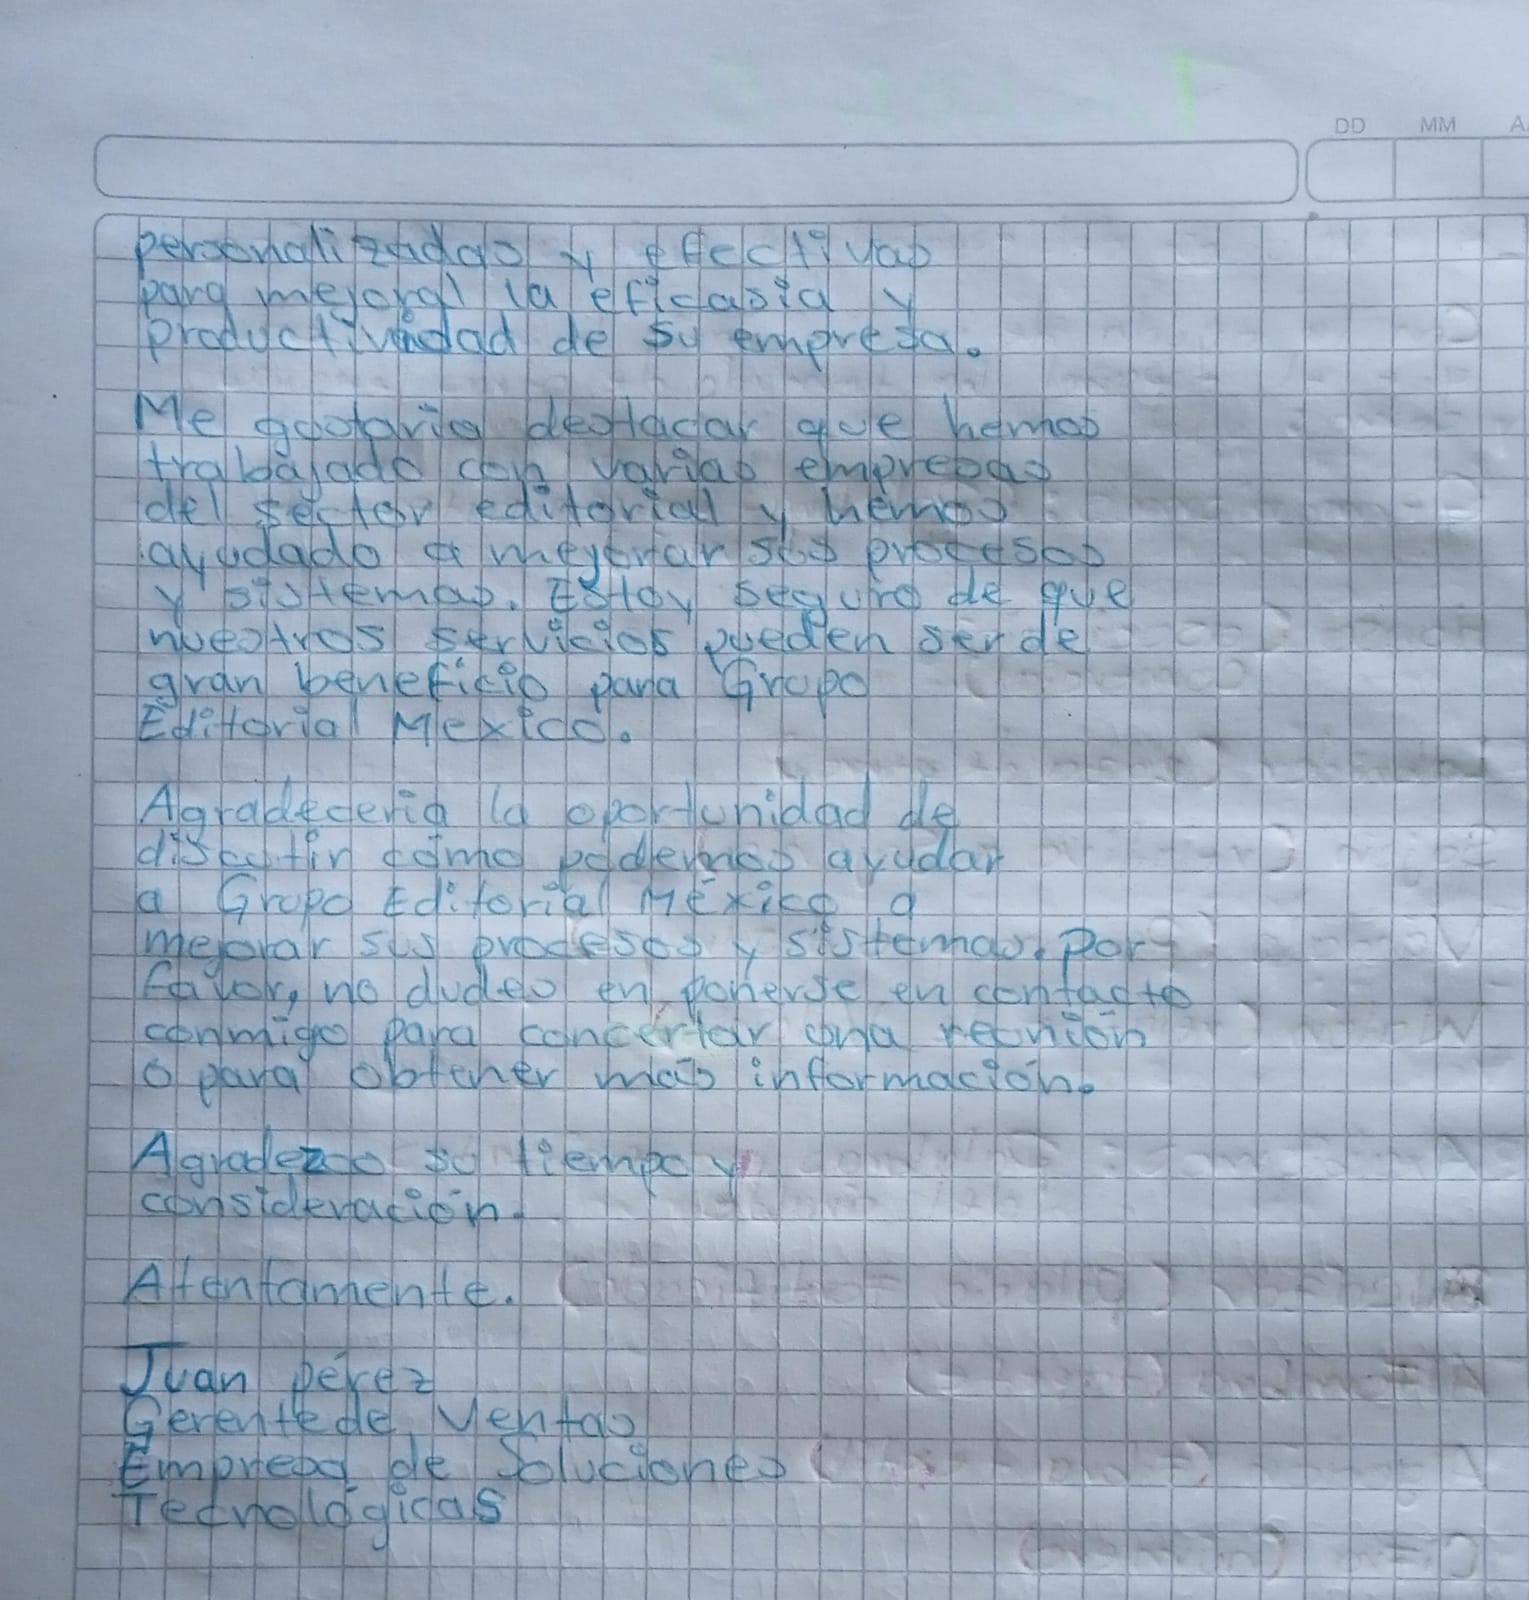 DD MM
personalizadas y efectivas
para mejoral la eficasia y
productividad de su empresa.
Me gostaria destacar que hemos
trabajado con varias empresas
del sector editorial y hemos
ayudado a meyorar sus procesos
y sistemas. Estoy seguro de que
nuestros servicios pueden ser de
gran beneficio para Grupo
Editorial Mexico.
Agradeceria la oportunidad de
discutir cómo podemos ayudar
a Grupo Editorial México a
mejorar sus procesos y sistemas. Por
favor, no dudes en ponerse en contacto
conmigo para concertar una reunión
o para obtener más información.
Agradezco su tiempo y
consideración.
Atentamente.
Juan pérez
Gerente de Ventas
Empresa de Soluciones
Tecnológicas